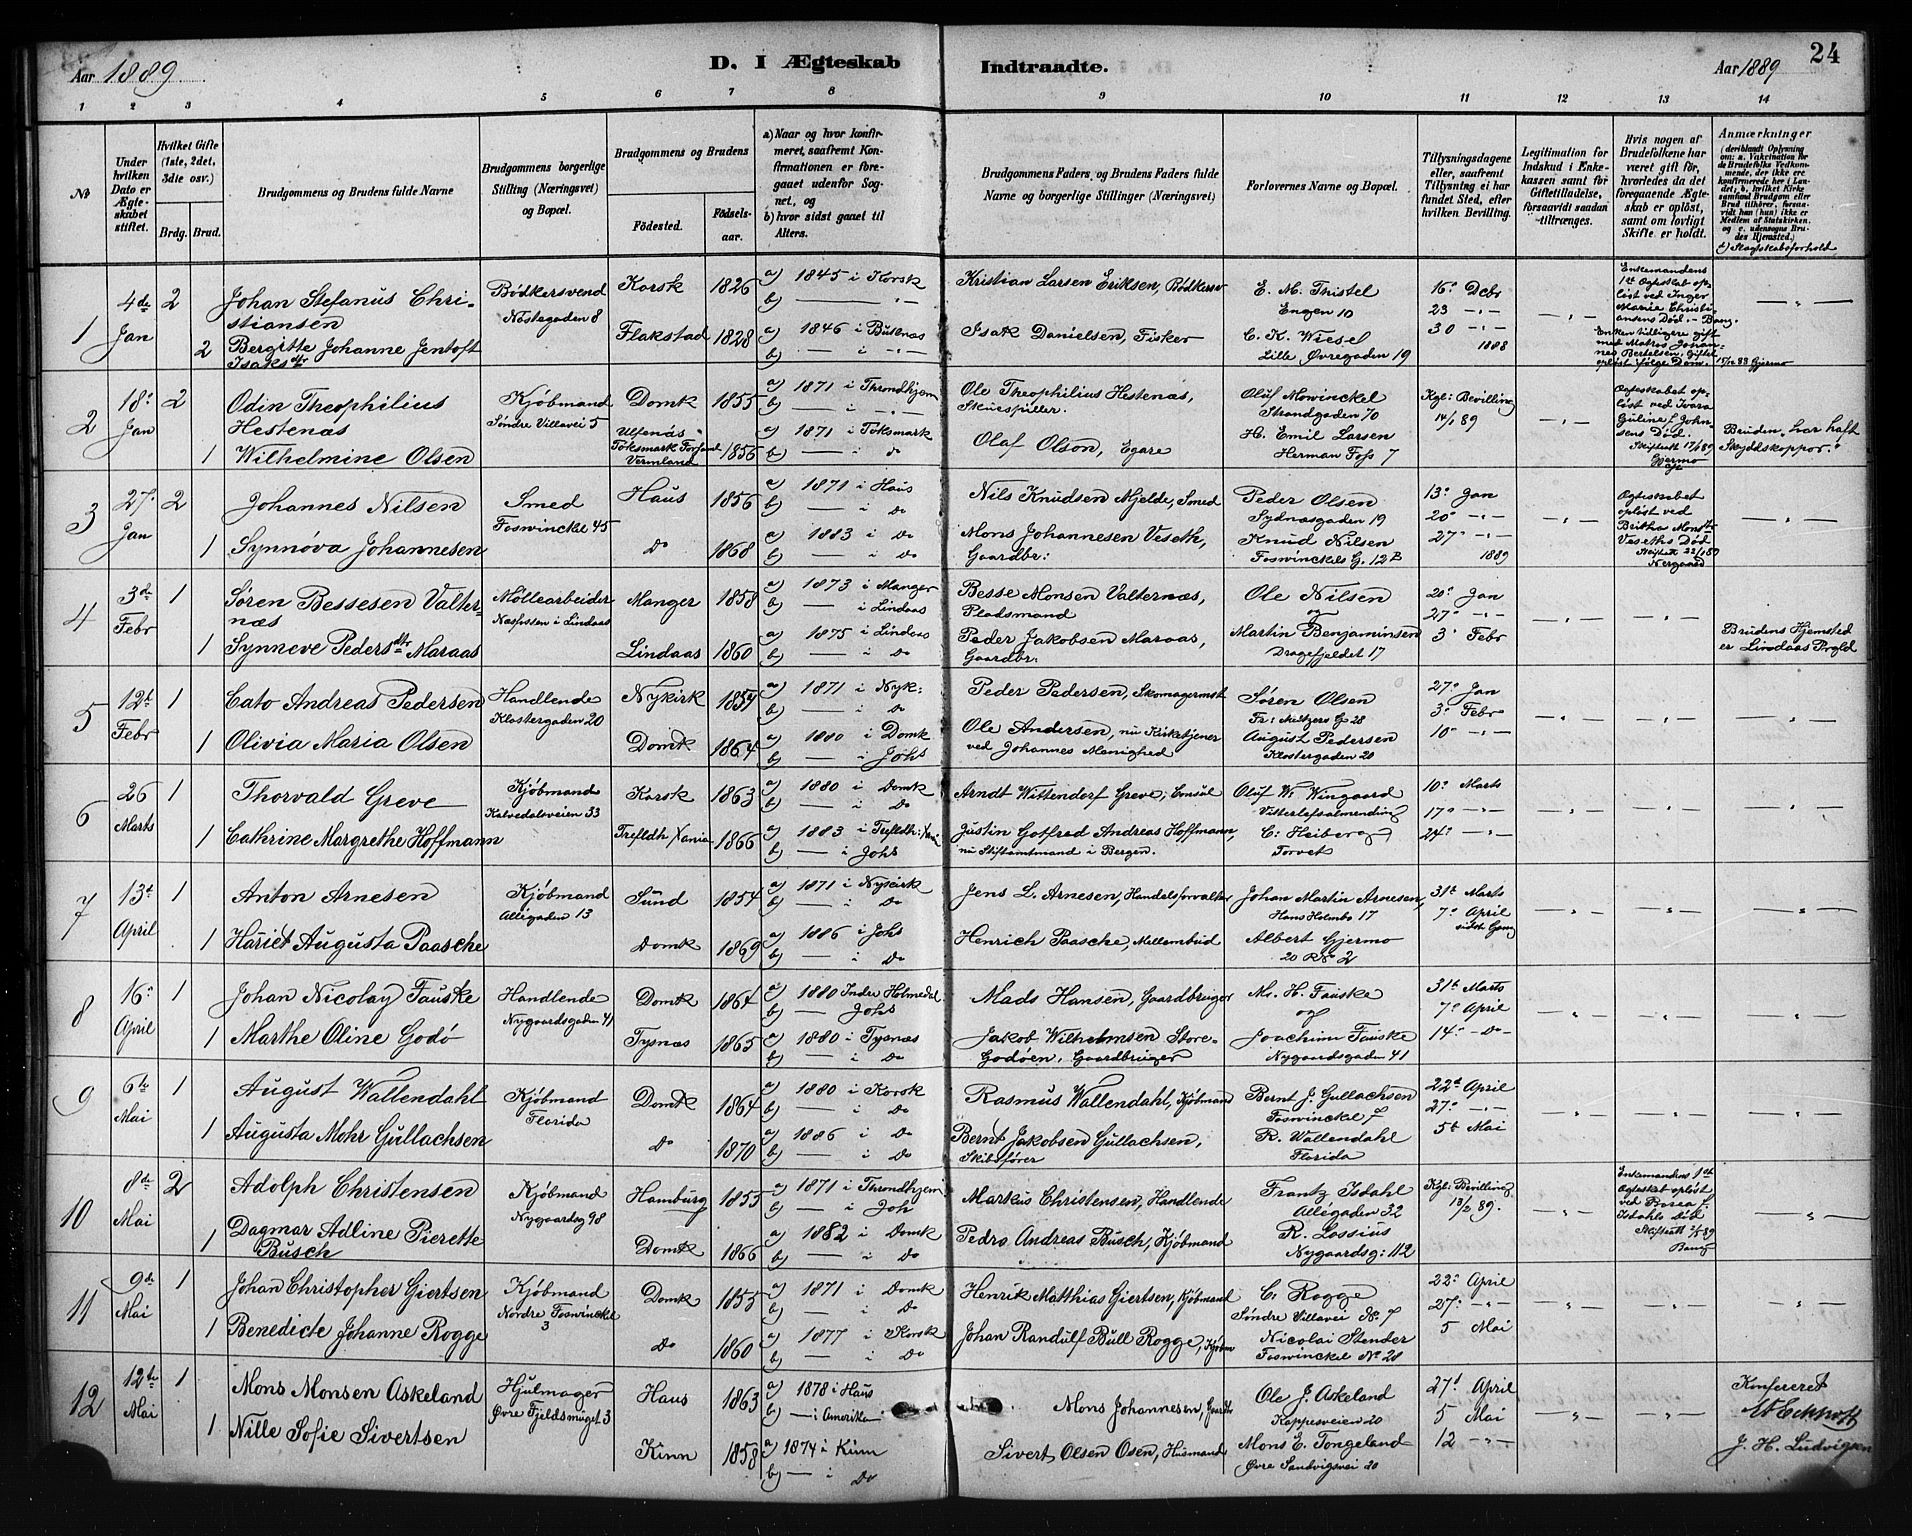 24
D. I Ægteskab Indtraadte.
Aar 1889
Aar 1889
1 2 3 4 5 6 7 8 9 10 11 12 13 14
№
Under hvilken Dato er Ægteskabet stiftet.
Hvilket Gifte (1ste, 2det, 3die osv.)
Brdg. Brud.
Brudgommens og Brudens fulde Navne
Brudgommens borgerlige Stilling (Næringsvei) og Bopæl.
Brudgommens og Brudens
Fødested.
Fødselsaar.
a) Naar og hvor konfirmeret, saafremt Konfirmationen er foregaaet udenfor Sognet, og
b) hvor sidst gaaet til Alters.
Brudgommens Faders og Brudens Faders fulde Navne og borgerlige Stillinger (Næringsvei)
Forlovernes Navne og Bopæl.
Tillysningsdagene eller, saafremt Tillysning ei har fundet Sted, efter hvilken Bevilling.
Legitimation for Indskud i Enkekassen samt for Giftetilladelse, forsaavidt saadan tiltrænges.
Hvis nogen af Brudefolkene har været gift før, hvorledes da det foregaaende Ægteskab er opløst, samt om lovligt Skifte er holdt.
Anmærkninger (deriblandt Oplysning om: a. Vakcination for de Brudefolks Vedkommende, der ikke ere konfirmerede her i Landet, b. hvilket Kirkesamfund Brudgom eller Brud tilhører, forsaavidt han (hun) ikke er Medlem af Statskirken. og c. udensogns Brudes Hjemsted.)
d) Slægtskabsforhold
1 4de Jan 2 Johan Stefanus Christiansen Bødkersvend Nøstegaden 8 Korsk 1826 a) 1845 i Korsk b) — „ - Kristian Larsen Eriksen, Bødkersv E. M. Thistel Engen 10 16 Debr 23 -„- 30 -„- 1888 Enkemandens 1st Ægteskab opløst ved Inger Marie Christiansens Død - Bang.
2 Bergitte Johanne Jentoft Isaksdtr Flakstad 1828 a) 1846 i Busenæs b) — i -„- Isak Danielsen, Fisker C. K. Wiesel Lille Øvregaden 19 Enken tidligere gift med Matros Johannes Bertelsen, Giftet opløst ifølge Dom 15/12 83 Gjermo
2 18 Jan 2 Odin Theophilius Hestenæs Kjøbmand Søndre Villavei 5 Domk 1855 a) 1871 i Throndhjem b) — „ - Ole Theophilius Hestenæs, Oluf Mowinckel Strandgaden 70 Kgl: Bevilling 14/1 89 Ægteskabet opløst ved Død. Skifteatt 17/1 89 Gjermo
1 Wilhelmine Olsen Vermland 1856 a) 1871 i Töksmark b) — i do Olaf Olson, Egare H. Emil Larsen Herman Foss 7 Bruden „har haft Skyddskoppor."
3 27 Jan 2 Johannes Nilsen Smed Foswinckle 45 Haus 1856 a) 1871 i Haus b) — i Do Nils Knudsen Mjelde, Smed Peder Olsen Sydnæsgaden 19 13 Jan 20 -„- 27 -„- 1889 Ægteskabet opløst ved Britha Monsdtr Veseths Død Skifteatt 22/1 89 Nergaard
1 Synnøva Johannesen Do 1868 a) 1883 i Do b) — i Do Mons Johannesen Veseth, Gaardbr: Knud Nilsen Foswinckels G. 12 B
4 3de Febr 1 Søren Bessesen Valternæs Møllearbeider i Lindaas Manger 1858 a) 1873 i Manger b) — i Lindaas Besse Monsen Valternæs, Pladsmand Ole Nilsen og 20 Jan 27 -„- 3 Febr
1 Synneve Pedersdtr Maraas Lindaas 1860 a) 1875 i Lindaas b) — i Do Peder Jakobsen Maraas, Gaardbr: Martin Benjaminsen Dragefjeldet 17 Brudens Hjemsted er Lindaas Prgld
5 12t Febr 1 Cato Andreas Pedersen Handlende Klostergaden 20 Nykirk 1859 a) 1871 i Nyk: b) — i Do Peder Pedersen, Skomagermstr Søren Olsen Fr: Meltzers G 28 27 Jan 3 Febr 10 -„-
1 Olivia Maria Olsen Domk 1864 a) 1880 i Domk b) — i Johs Ole Andersen, nu Kirketjener ved Johannes Menighed August Pedersen Klostergaden 20
6 26 Marts 1 Thorvald Greve Kjøbmand Kalvedalsveien 33 Korsk 1863 a) 1880 i Domk b) — i Do Arndt Wittendorf Greve, Consul Oluf W. Wingaard 10 Marts 17 -„- 24 -„-
1 Cathrine Margrethe Hoffmann Trefldh Xania 1866 a) 1883 i Trefldh: Xania b) — i Johs Justin Gotfred Andreas Hoffmann, nu Stiftamtmand i Bergen. C: Heiberg Torvet
7 13t April 1 Anton Arnesen Kjøbmand Allégaden 13 Sund 1854 a) 1871 i Nykirk b) — i Do Jens L. Arnesen, Handelsforvalter Johan Martin Arnesen, Hans Holmbo 17 31t Marts 7 April sidste Gang
1 Hariet Augusta Paasche Domk 1869 a) 1886 i Johs b) — i Do Henrich Paasche, Mellembud Albert Gjermo 20 R № 2
8 16 April 1 Johan Nicolay Fauske Handlende Nygaardsgaden 41 Domk 1864 a) 1880 Indre Holmedal b) — Johs Mads Hansen, Gaardbruger M. H. Fauske og 31t Marts 7 April 14 - Do
1 Marthe Oline Godø Tysnæs 1865 a) 1880 i Tysnæs b) — i Do Jakob Wilhelmsen Store-Godøen, Gaardbruger Joachim Fauske Nygaardsgaden 41
9 6te Mai 1 August Wallendahl Kjøbmand Florida Domk 1864 a) 1880 i Korsk b) — i Do Rasmus Wallendahl, Kjøbmand Bernt J. Gullachsen Foswinckel 7 22t April 27 -„- 5t Mai
1 Augusta Mohr Gullachsen Do 1870 a) 1886 i Do b) — i Do Bernt Jakobsen Gullachsen, Skibsfører R. Wallendahl Florida
10 8de Mai 2 Adolph Christensen Kjøbmand Nygaardsg 98 Hamburg 1855 a) 1871 i Throndhjem b) — i Joh Markus Christensen, Handlende Frantz Isdahl Allégaden 32 Kgl: Bevilling 13/2 89. Enkemandens 1st Ægteskab opløst ved Isdahls Død Skifteatt 2/5 89 Bang
1 Dagmar Adline Pierette Busch Domk 1866 a) 1882 i Domk b) — i Do Pedro Andreas Busch, Kjøbmand R. Lossius Nygaardsg: 112
11 9de Mai 1 Johan Christopher Giertsen Kjøbmand Nordre Foswinckel 3 Domk 1855 a) 1871 i Domk b) — i Do Henrik Matthias Giertsen, Kjøbmand C: Rogge Søndre Villavei № 7 22 April 27 -„- 5 Mai
1 Benedicte Johanne Rogge Do 1860 a) 1877 i Korsk b) — i Do Johan Randulf Bull Rogge, Kjøbm Nicolai Stender Foswinckel № 20
12 12te Mai 1 Mons Monsen Askeland Hjulmager Øvre Fjeldsmuget 3 Haus 1863 a) 1878 i Haus b) — i Amerika Mons Johannesen, Gaardbr Ole J. Askeland Kappesveien 20 27t April 5 Mai 12 -„- Konfereret
1 Nille Sofie Sivertsen Kinn 1858 a) 1874 i Kinn b) — i Do Sivert Olsen Osen, Husmand Mons E. Tongeland Øvre Sandvigsvei 20 J. H. Ludvigsen